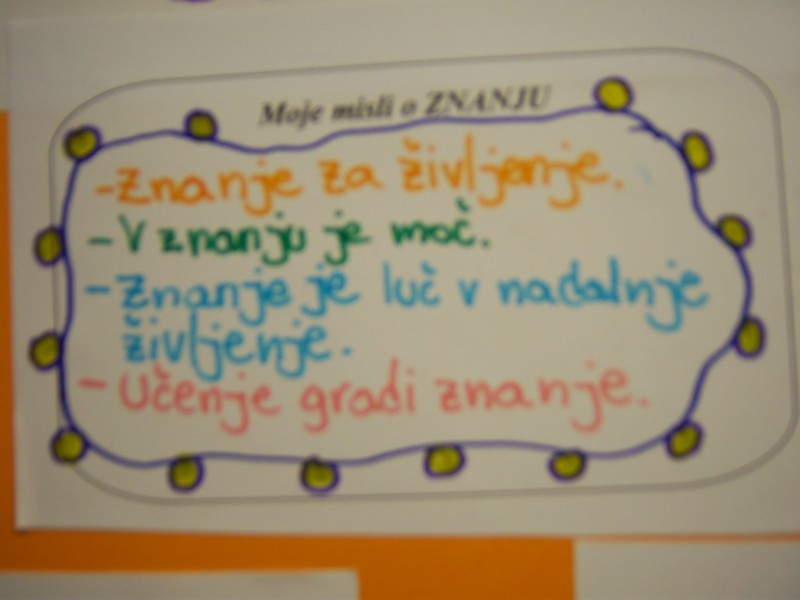 Moje misli o ZNANJU
-Znanje za življenje.
- V znanju je moč.
- Znanje je luč v nadalnje
življenje.
- Učenje gradi znanje.